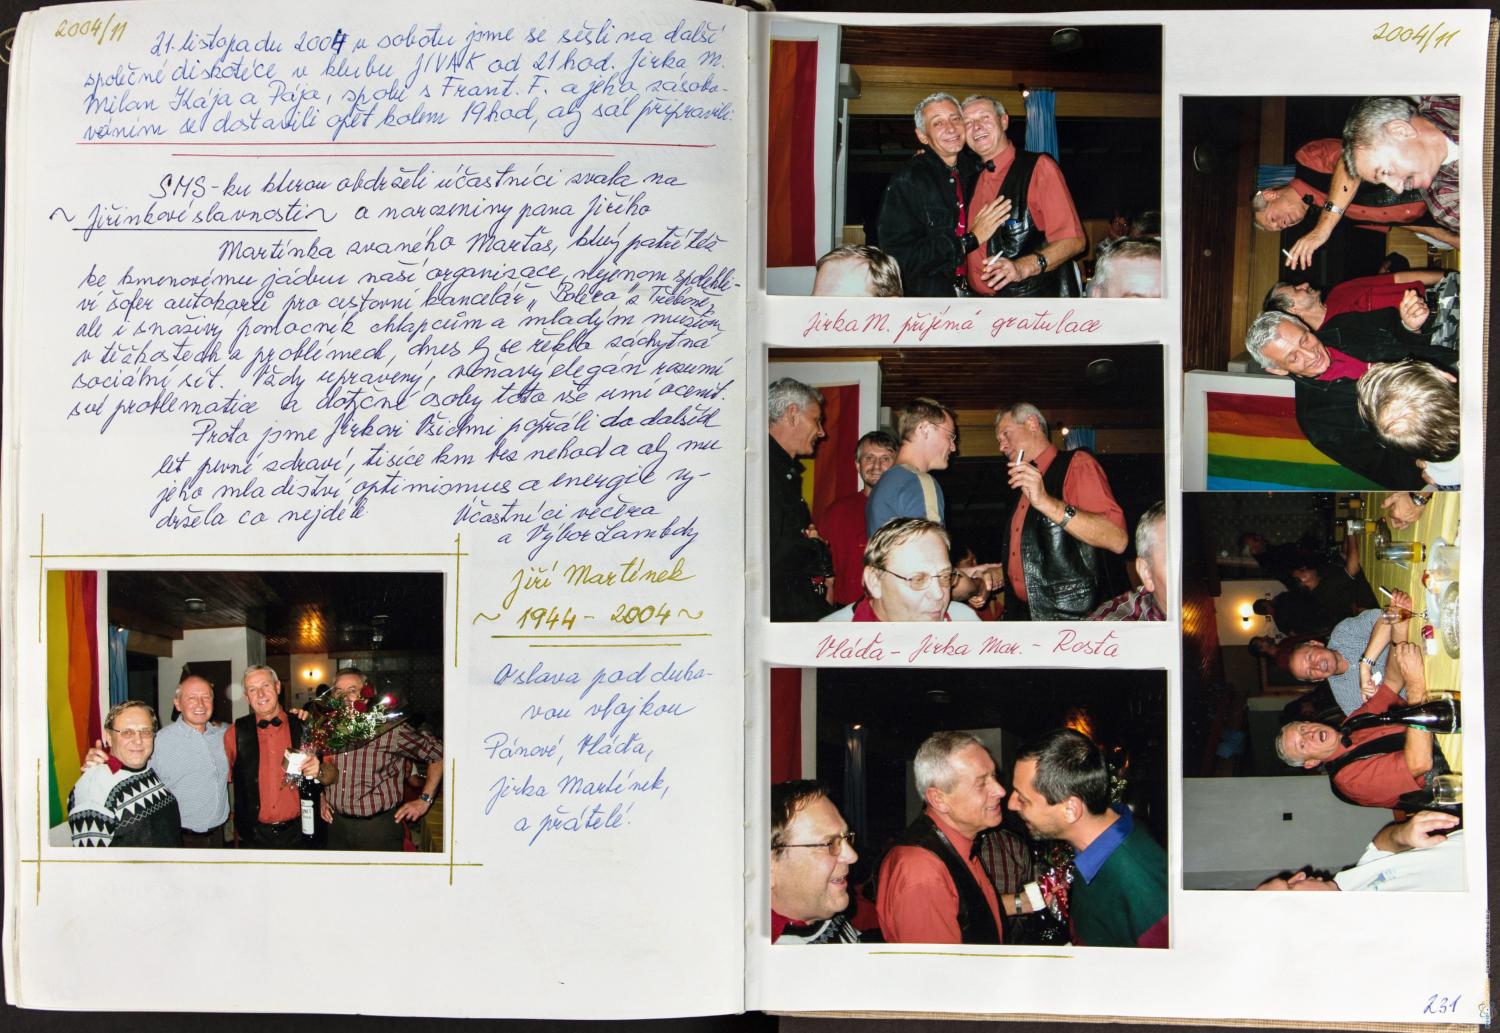 2004/11
21. listopadu 2004 v sobotu jsme se sešli na další
společné diskotéce v klubu JIVAK od 21 hod. Jirka M.
Milan Kája a Pája, spolu s Frant. F. a jeho zásobo-
váním se dostavili opět kolem 19 hod, aby sál připravili.
SMS-ku kterou obdrželi účastníci zvala na
~ Jiřinkové slavnosti ~ a narozeniny pana Jiřího
Martínka zvaného Marťas, který patří též
ke kmenovému jádru naší organizace, nejenom spolehli-
vý šofer autokarů pro cestovní kancelář „Boléra" z Třeboně,
ale i snaživý pomocník chlapcům a mladým mužům
v těžkostech a problémech, dnes by se řeklo záchytná
sociální síť. Vždy upravený, voňavý elegán rozumí
své problematice a dotčné osoby toto vše umí ocenit.
Proto jsme Jirkovi Všichni popřáli do dalších
let pevné zdraví, tisíce km bez nehod a aby mu
jeho mladistvý optimismus a energie vy-
držela co nejdéle.
Účastníci večera
a Výbor Lambdy
Jiří Martínek
~ 1944 - 2004 ~
Oslava pod duho-
vou vlajkou
Pánové, Vláďa,
Jirka Martínek,
a přátelé.
2004/11
Jirka M. přijímá gratulace
Vláďa - Jirka Mar. - Rosťa
231